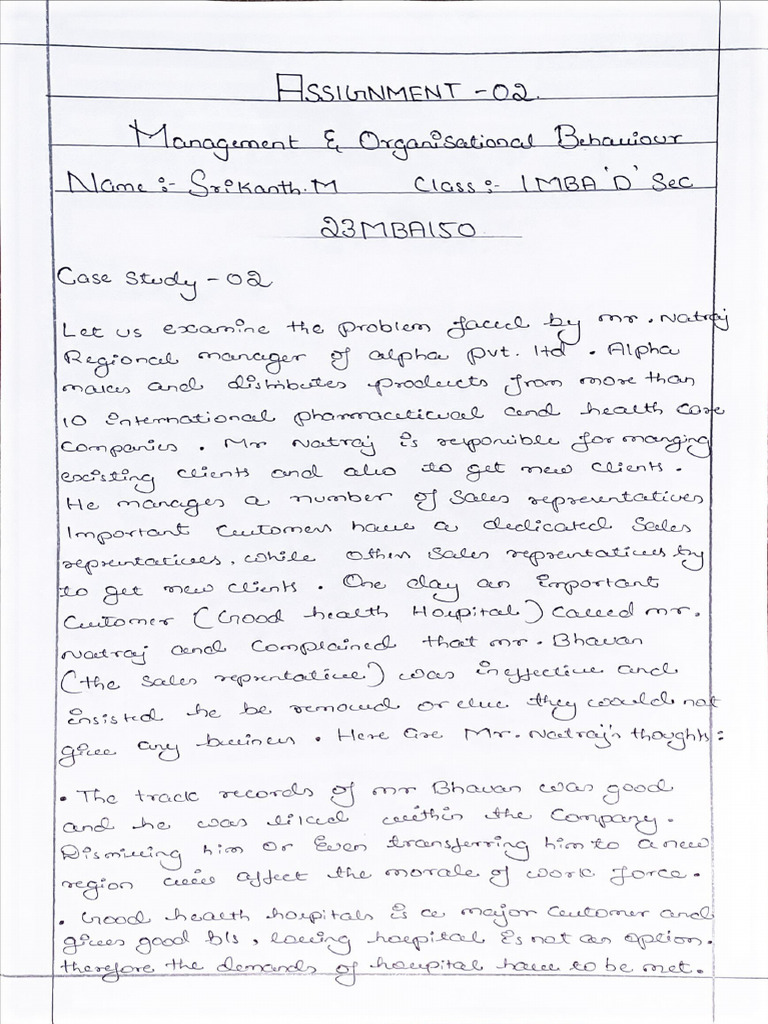 ASSIGNMENT - 02.
Management & Organisational Behaviour
Name :- Srikanth.M Class :- 1 MBA 'D' Sec
23MBA150
Case Study - 02
Let us examine the problem faced by mr. Natraj
Regional manager of alpha pvt. ltd . Alpha
makes and distributes products from more than
10 international pharmacetical and health care
companies . Mr Natraj is responible for manging
existing clients and also to get new clients .
He manages a number of sales representatives
Important Customers have a dedicated Sales
reprentatives, while others sales reprentatives by
to get new clients . One day an important
Customer (Good health Hospital) called mr.
Natraj and complained that mr. Bhavan
(the sales reprentative) was ineffective and
insisted he be removed or else they would not
give any business . Here are Mr. Natraj's thoughts :
• The track records of mr Bhavan was good
and he was liked within the Company.
Dismissing him or even transferring him to a new
region will affect the morale of work force .
• Good health hospitals is a major customer and
gives good b/s, losing hospital is not an option.
therefore the demands of hospital have to be met .